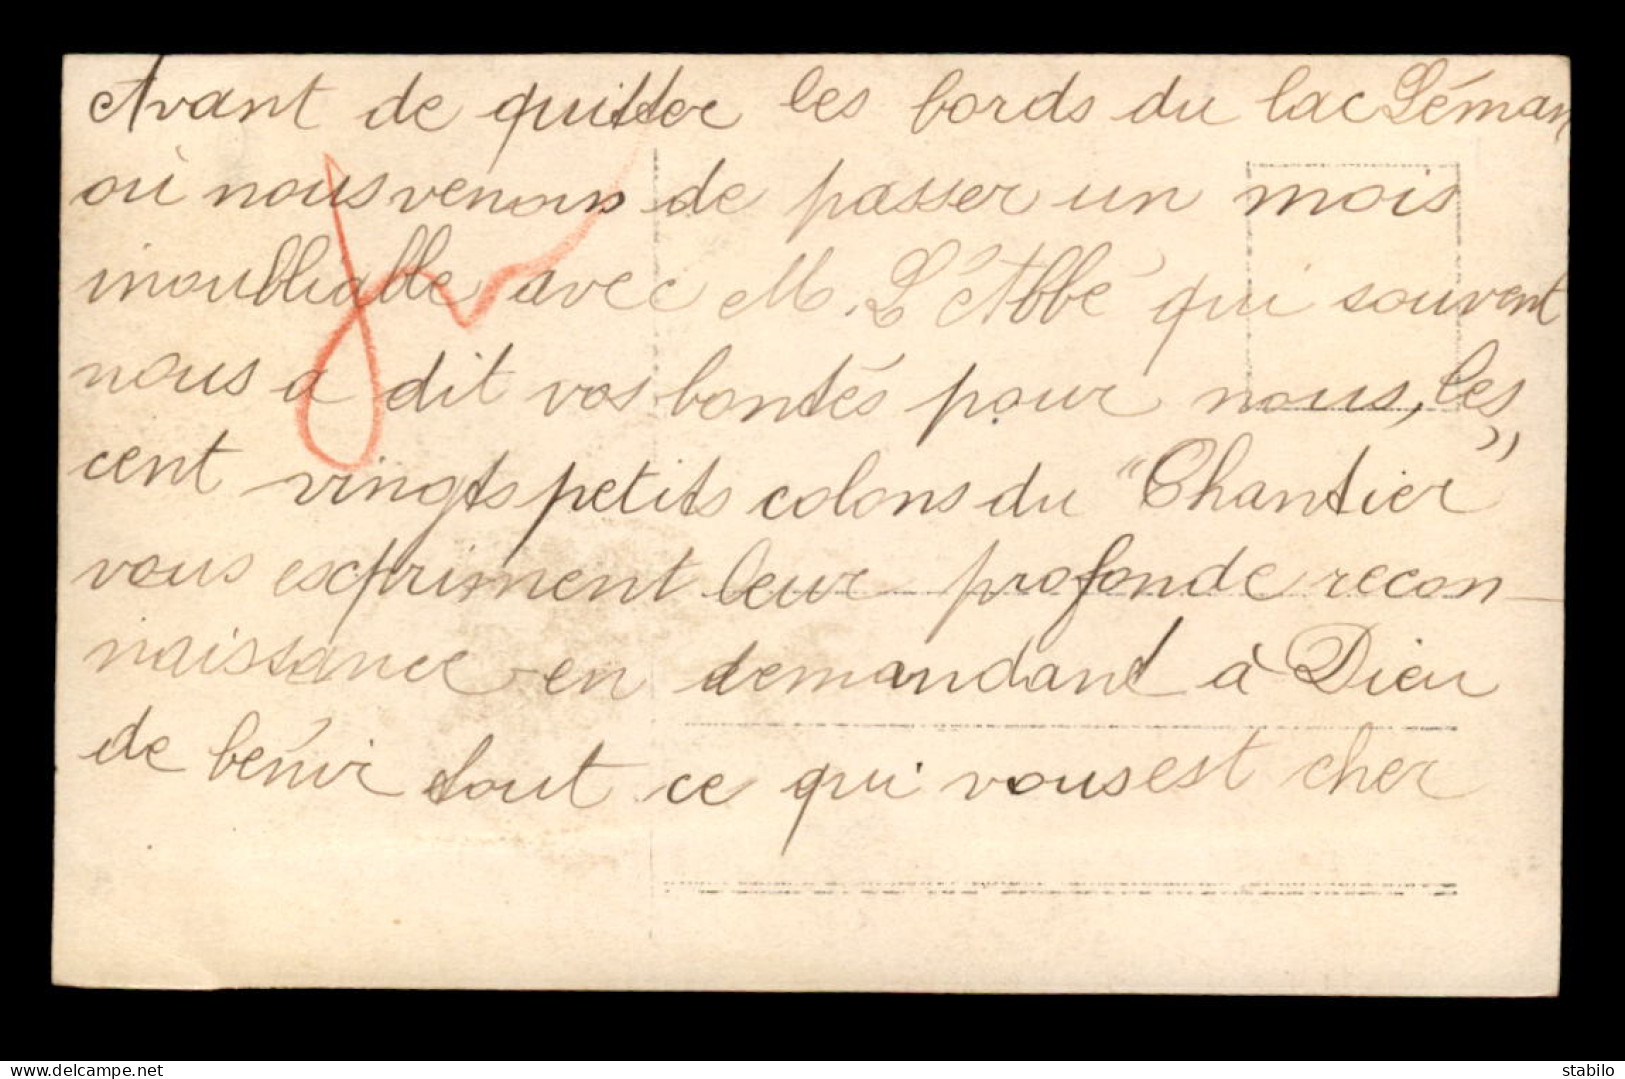 Avant de quitter les bords du lac Léman
où nous venons de passer un mois
inoubliable avec M. L'Abbé qui souvent
nous a dit vos bontés pour nous, les
cent vingts petits colons du "Chantier"
vous expriment leur profonde recon-
naissance en demandant à Dieu
de bénir tout ce qui vous est cher
www.delcampe.net
stabilo